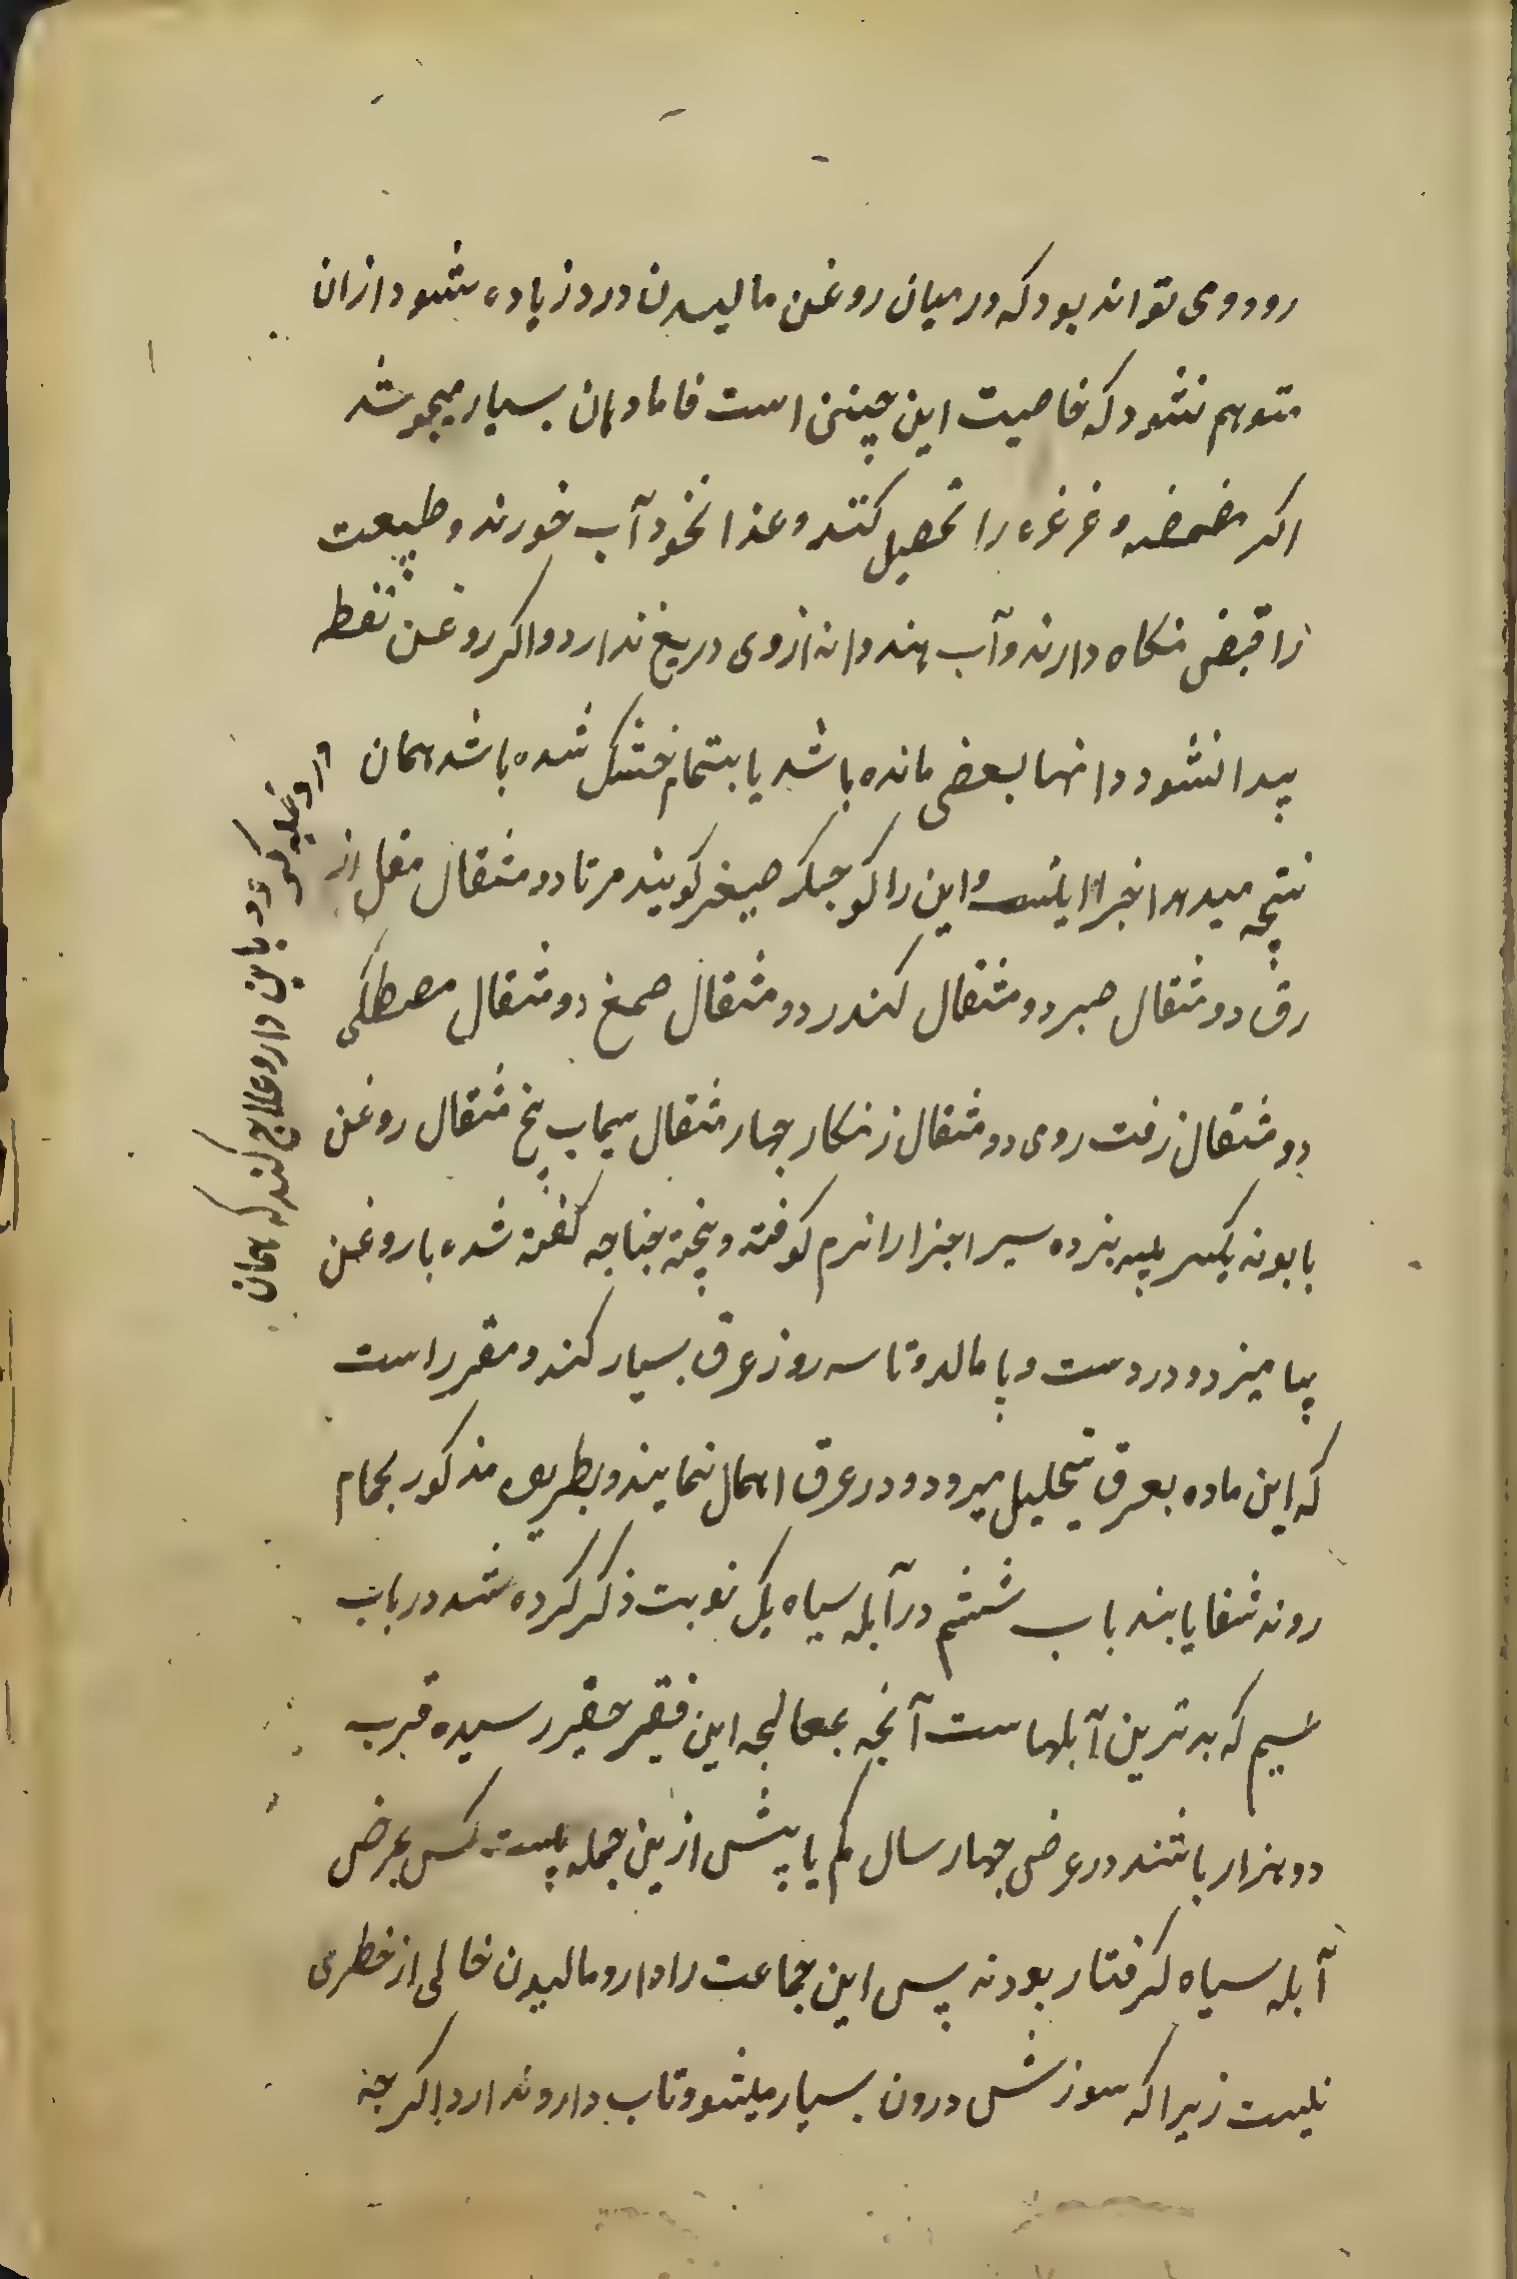 رود و می تواند بود که در میان روغن مالیدن درد زیاده شود از ان
متوهم نشود که خاصیت این چنین است فاما دهان بسیار میجوشد
اکر مضمضه و غرغره را تحصیل کنند و غذا نخود آب خورند و طبیعت
را قبض نکاه دارند و آب هندوانه از وی دریغ ندارد و اکر روغن نفطه
پیدا نشود و انها بعضی مانده باشد یا بتمام خشک شده باشد همان
دارو غلبه کرد باین دارو علاج کند که همان
نتیجه میدهد اجزا اینست و این را کوچکر صیغر کویند مرتا دو مثقال مقل از
رق دو مثقال صبر دو مثقال کندر دو مثقال صمغ دو مثقال مصطکی
دو مثقال زفت رومی دو مثقال زنکار چهار مثقال سیماب پنج مثقال روغن
بابونه یکسر پیه بز ده سیر اجزا را نرم کوفته و پخته چناچه کفته شده با روغن
بیامیزد و در دست و پا مالد و تا سه روز عرق بسیار کند و مقرر است
که این ماده بعرق تحلیل میرود و در عرق اهمال ننمایند و بطریق مذکور بحمام
روند شفا یابند باب ششم در آبله سیاه یک نوبت ذکر کرده شد در باب
سیم که بدترین آبلهاست آنچه بمعالجه این فقیر حقیر رسیده قریب
دو هزار باشند در عرض چهار سال کم یا بیش ازین جمله بیست کس بمرض
آبله سیاه کرفتار بودند پس این جماعت را دارو مالیدن خالی از خطری
نیست زیرا که سوزش درون بسیار میشود و تاب دارو ندارد اکر چه